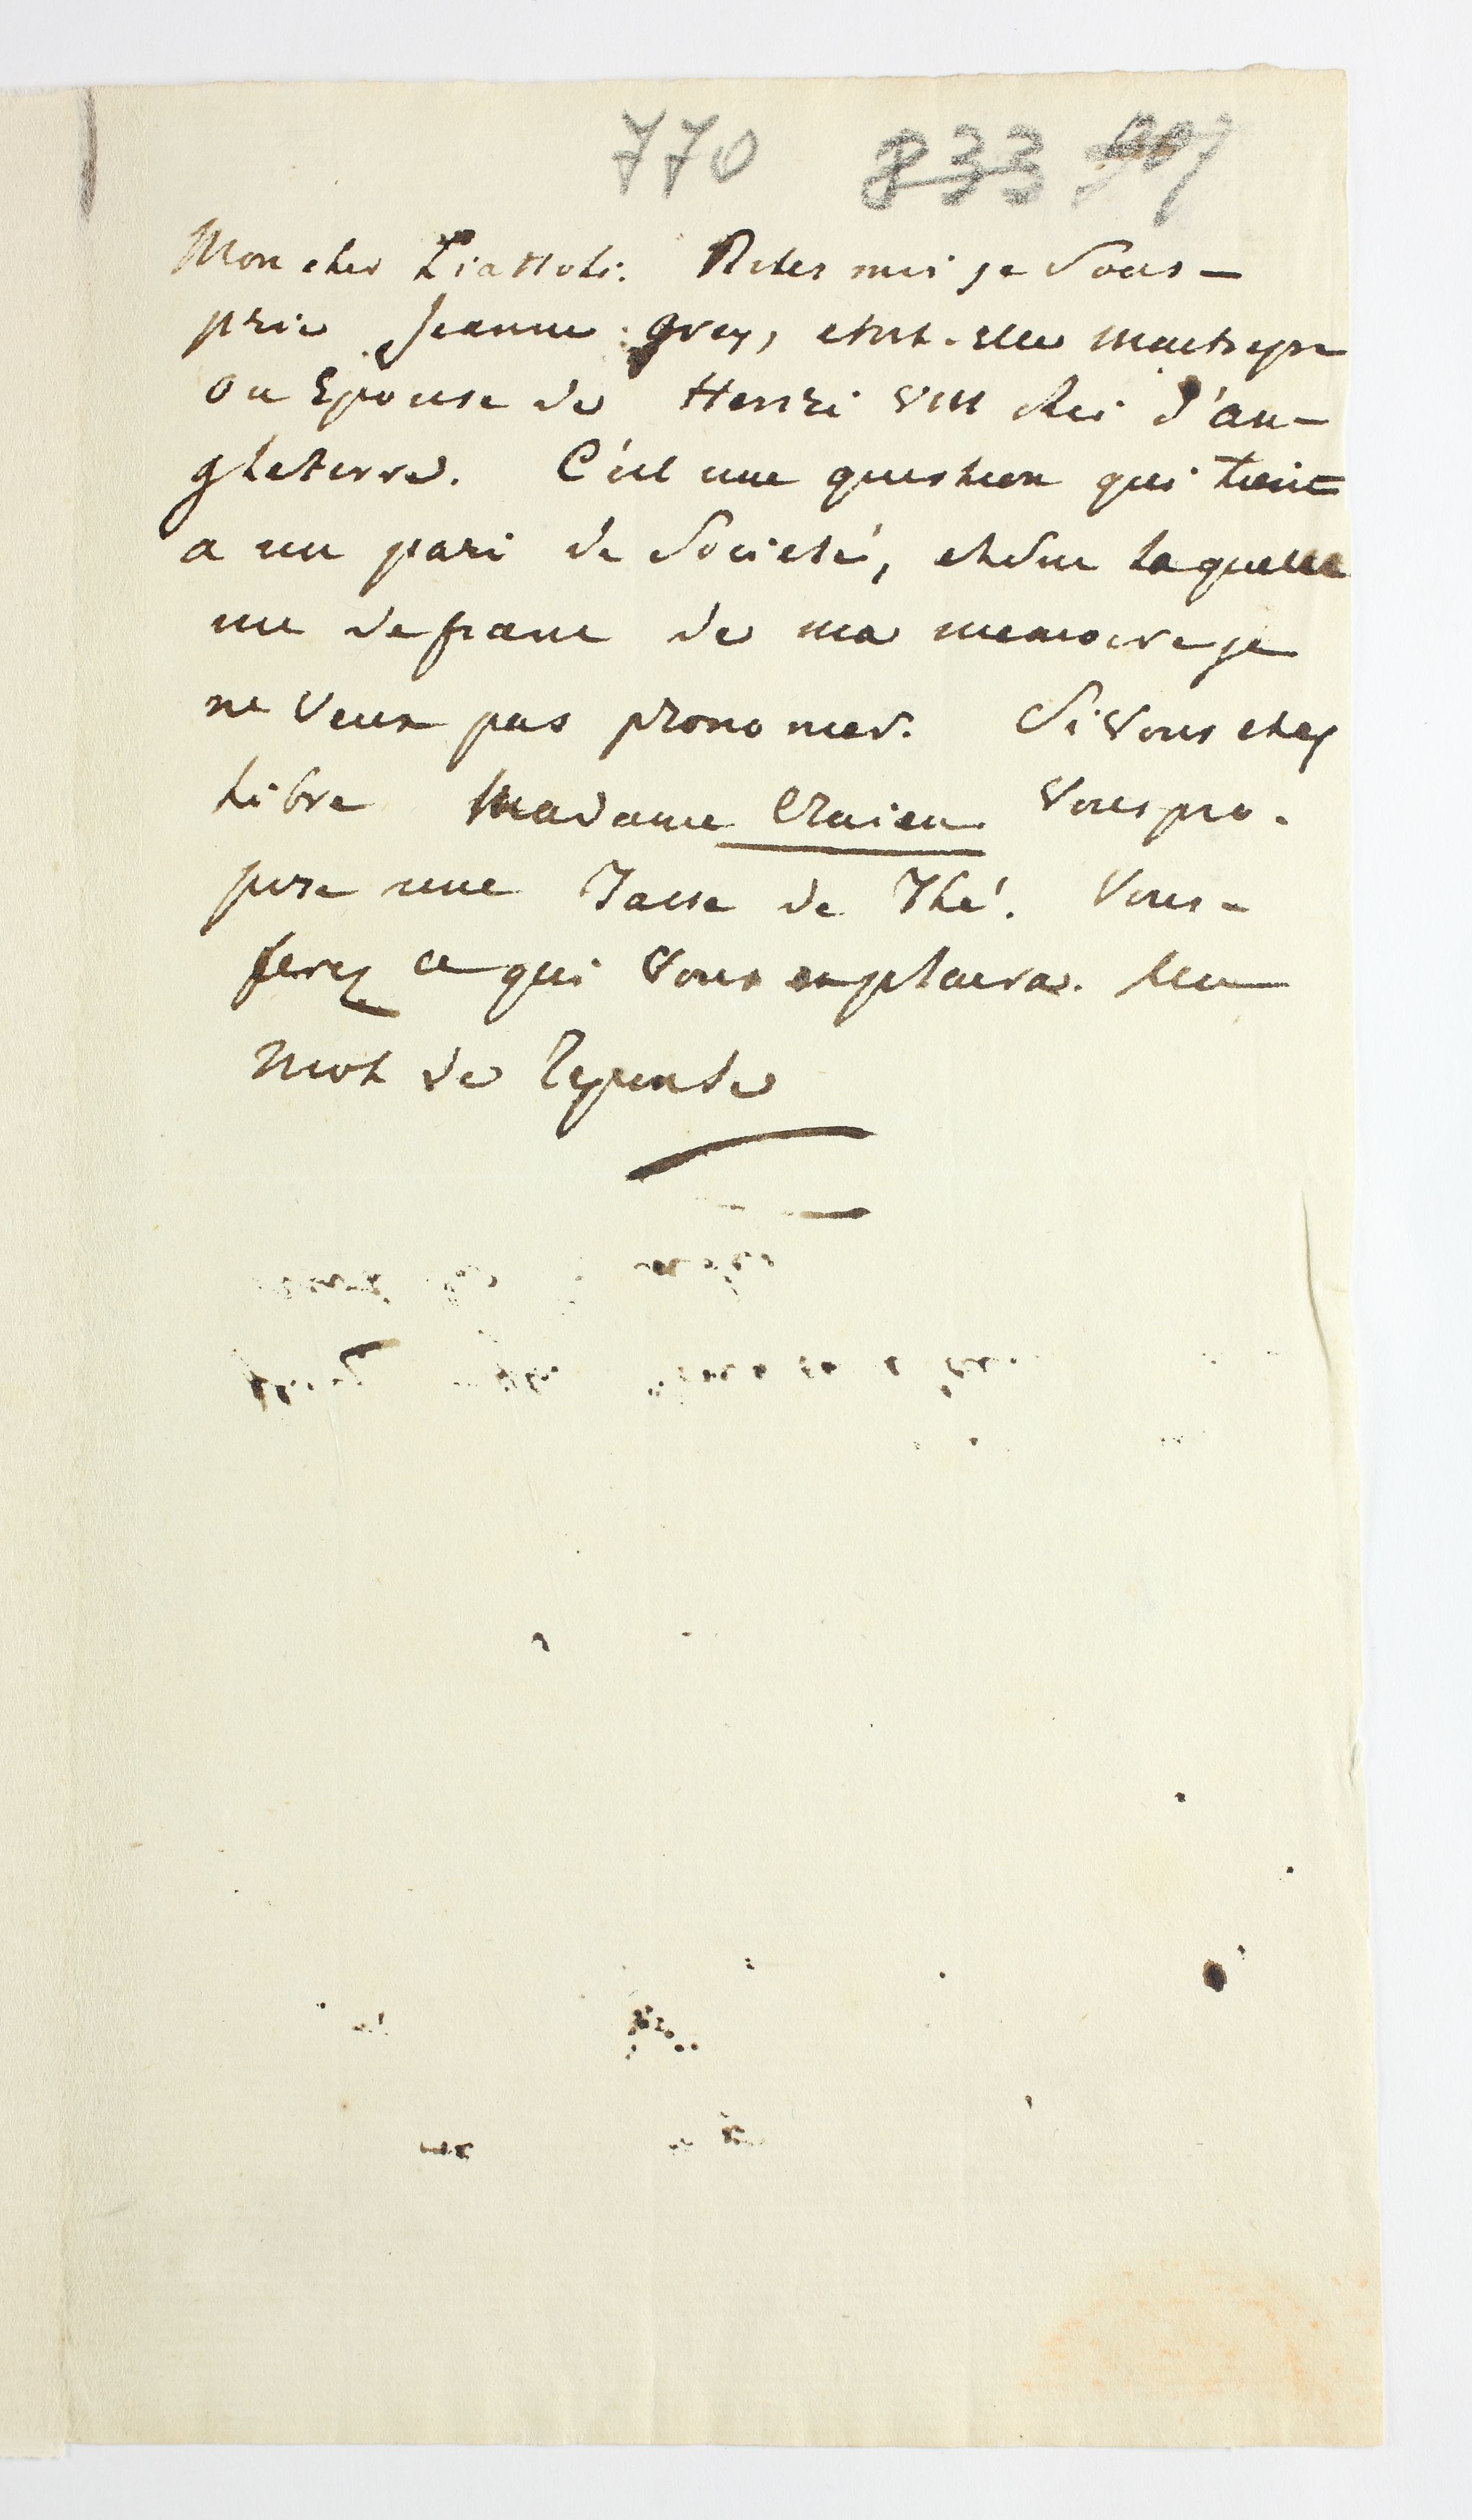 770 833 907
Mon cher Piattoli. Dites moi je Vous-
prie Jeanne Grey, etoit-elle maitresse
ou Epouse de Henri VIII Roi d'an-
gleterre. C'est une question qui tient
a un pari de Societé, et sur laquelle
me defiant de ma memoire je
ne Veux pas prononcer. Si Vous etez
libre Madame Craien Vous pro-
pose une Tasse de Thé. Vous-
ferez ce qui Vous en plaira. Un
mot de Reponse